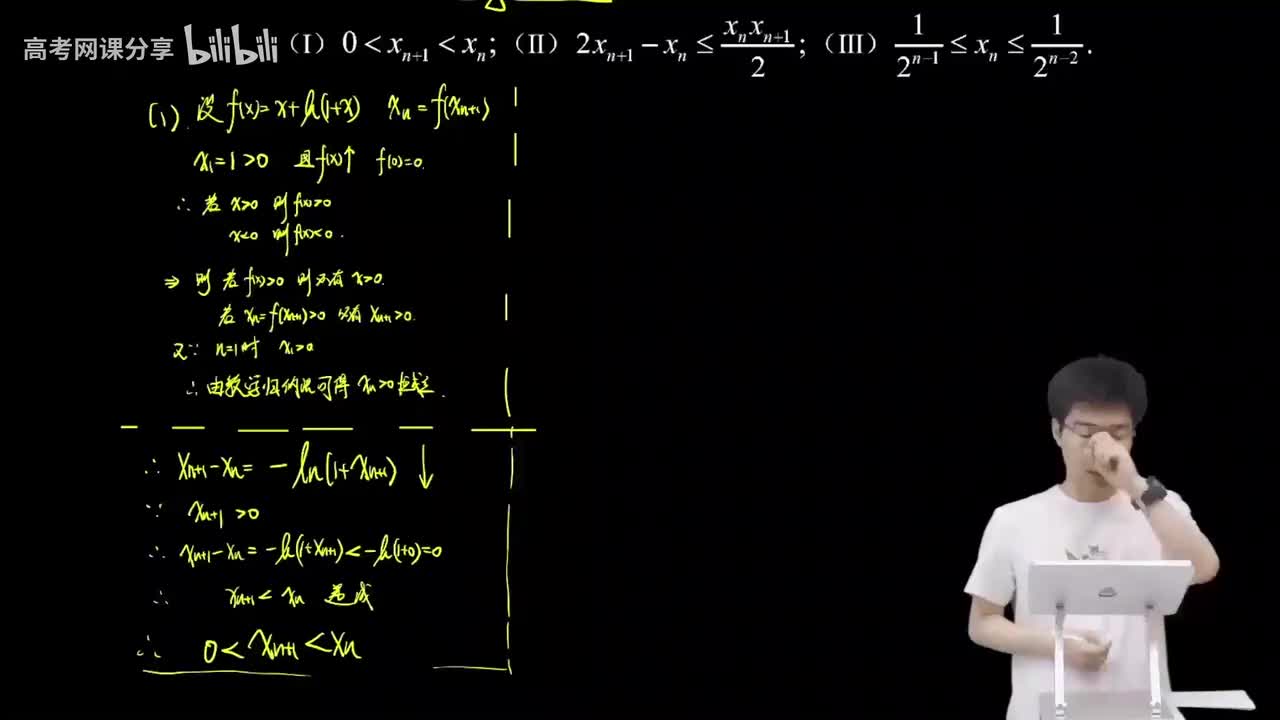 高考网课分享 bilibili (I) 0 < x_{n+1} < x_n; (II) 2x_{n+1} − x_n ≤ \frac{x_n x_{n+1}}{2}; (III) \frac{1}{2^{n-1}} ≤ x_n ≤ \frac{1}{2^{n-2}}.
(1). 设 f(x)=x+ln(1+x) x_n=f(x_{n+1})
x_1=1>0 且f(x)↑ f(0)=0.
∴ 若 x>0 则 f(x)>0
x<0 则 f(x)<0.
⇒ 则 若 f(x)>0 则必有 x>0.
若 x_n=f(x_{n+1})>0 必有 x_{n+1}>0.
又∵ n=1时 x_1>0
∴由数学归纳法可得 x_n>0 恒成立.
∴ x_{n+1}-x_n= -ln(1+x_{n+1}) ↓
∵ x_{n+1}>0
∴ x_{n+1}-x_n=-ln(1+x_{n+1})<-ln(1+0)=0
∴ x_{n+1}< x_n 恒成
∴ 0<x_{n+1}<x_n